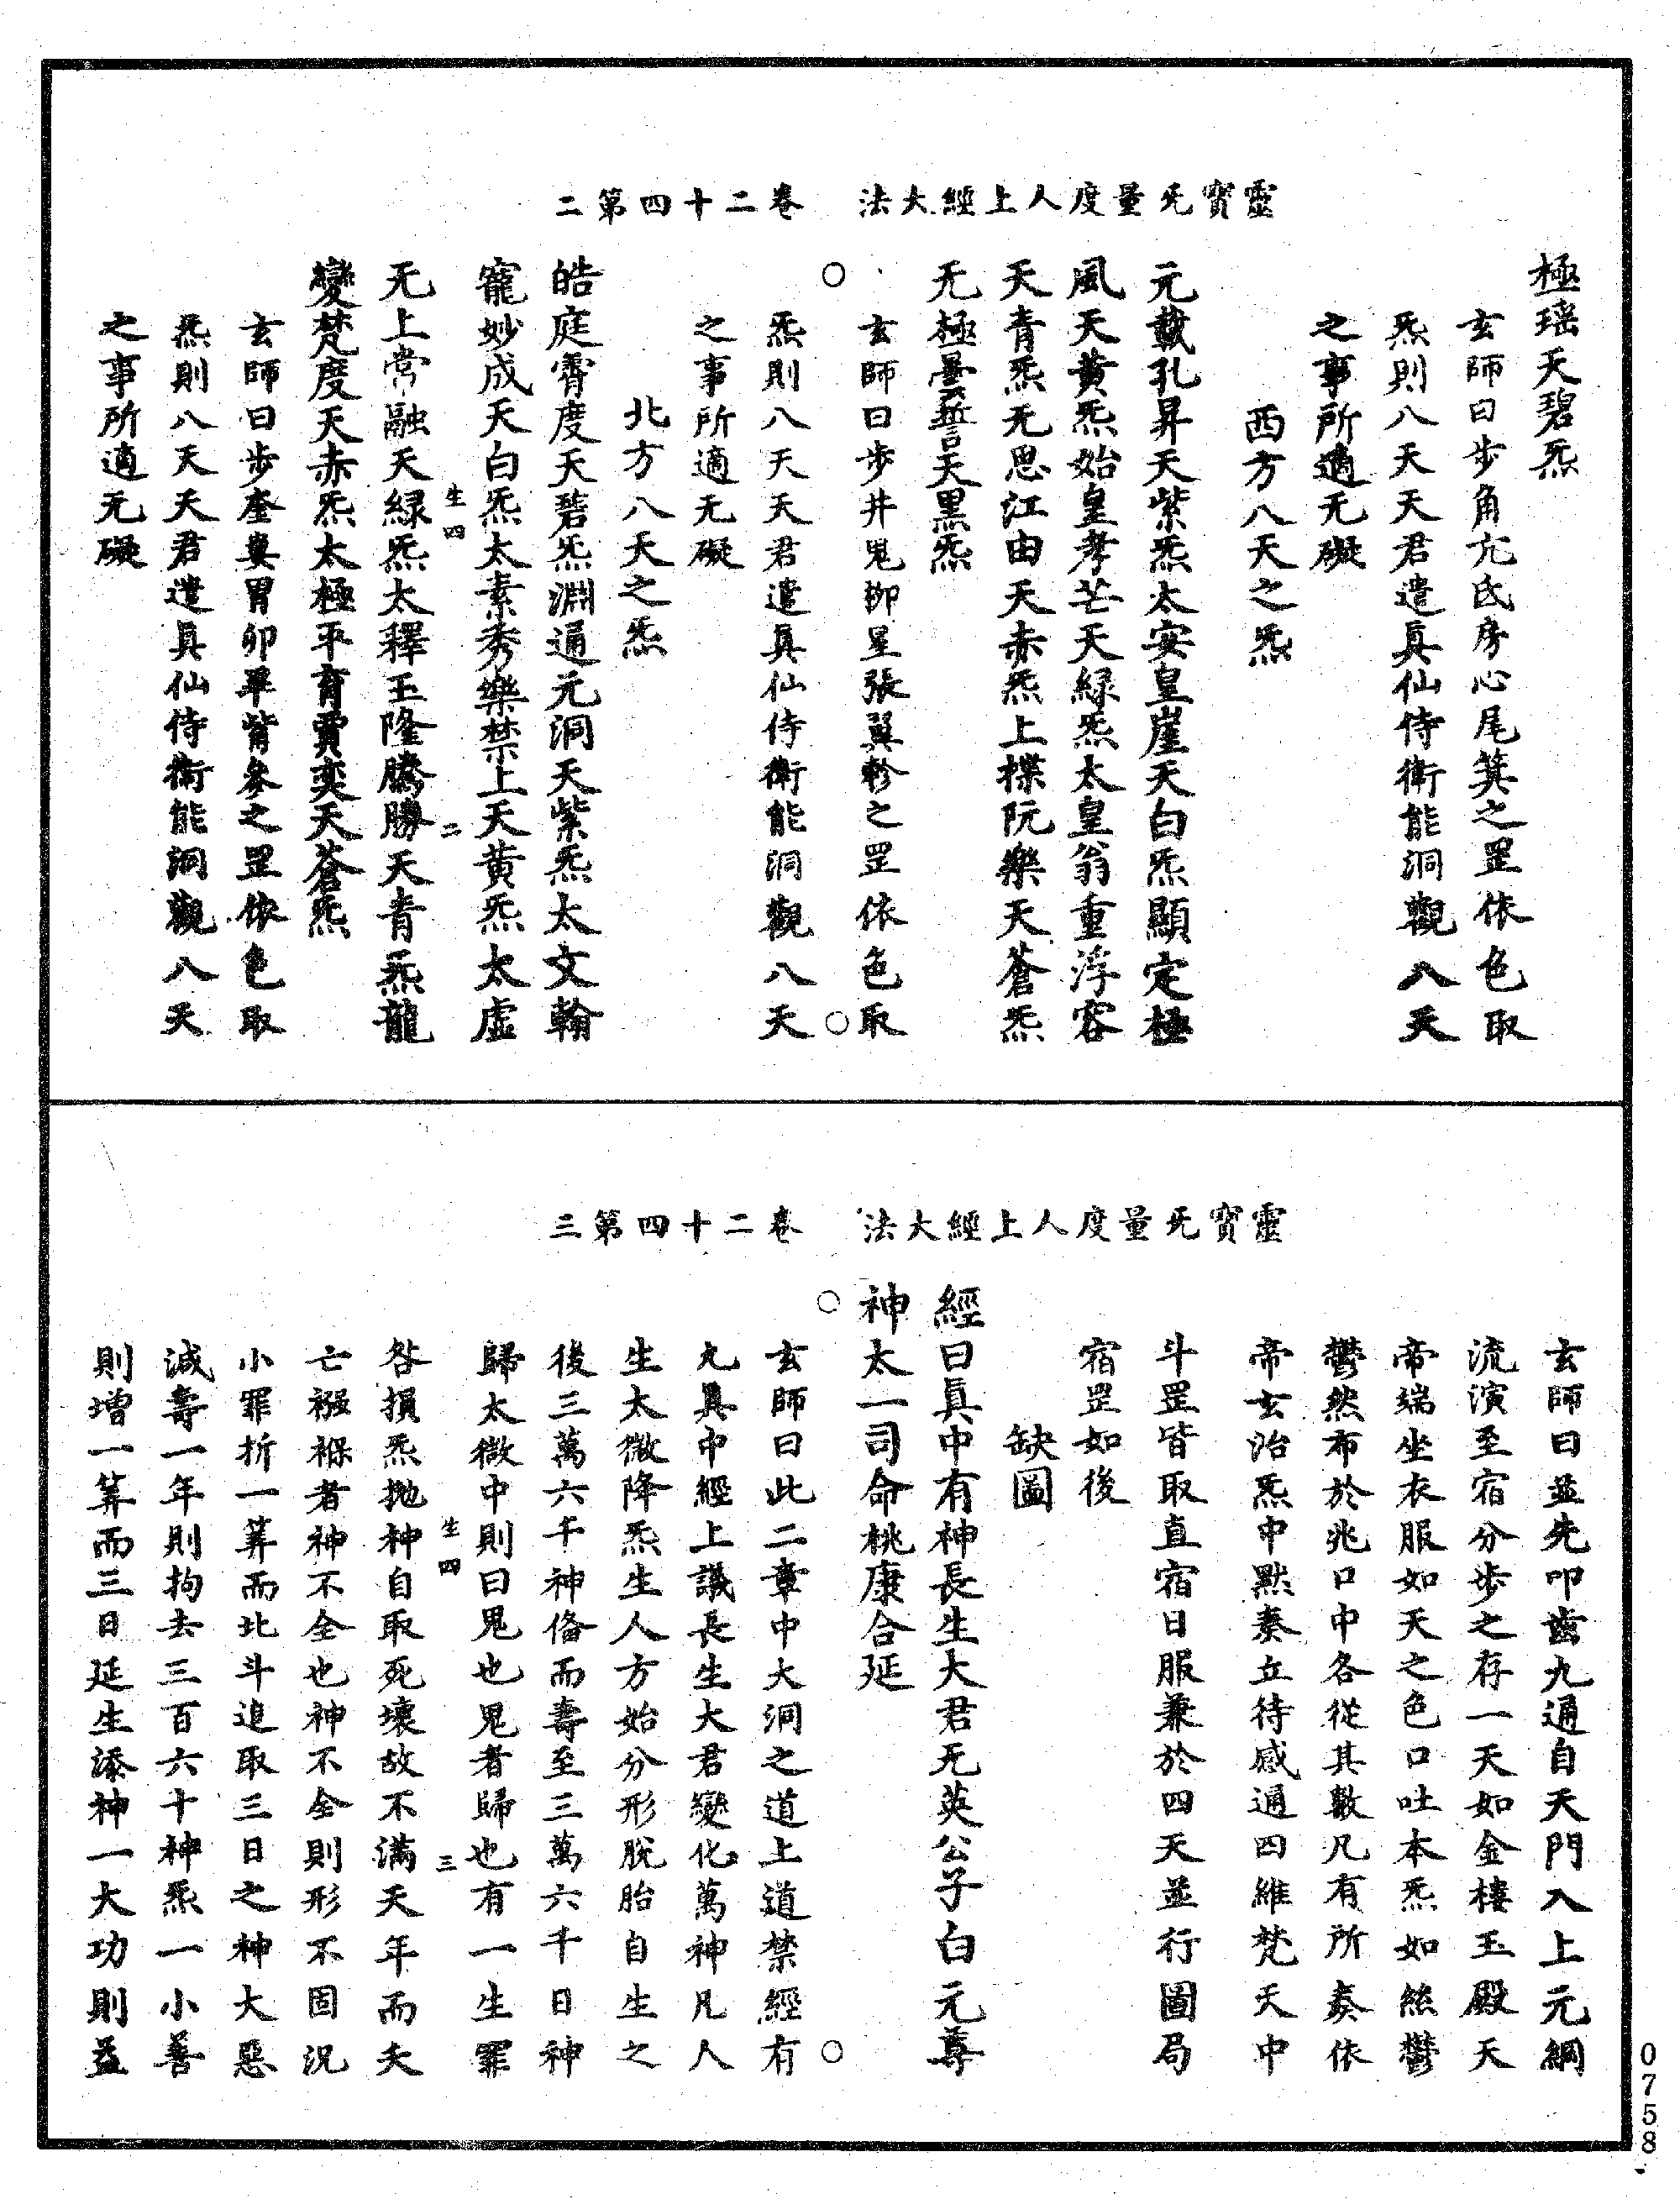 靈寶无量度人上經大法　卷二十四第二
極瑶天碧炁
玄師曰步角亢氐房心尾箕之罡依色取
炁則八天天君遣眞仙侍衛能洞觀八天
之事所適无礙
西方八天之炁
元載孔昇天紫炁太安皇崖天白炁顯定極
風天黄炁始皇孝芒天緑炁太皇翁重浮容
天青炁无思江由天赤炁上揲阮樂天蒼炁
无極曇誓天黒炁
玄師曰步井鬼柳星張翼軫之罡依色取
炁則八天天君遣眞仙侍衛能洞觀八天
之事所適无礙
北方八天之炁
皓庭霄度天碧炁淵通元洞天紫炁太文翰
寵妙成天白炁太素秀樂禁上天黄炁太虚
生四　二
无上常融天緑炁太釋玉隆騰勝天青炁龍
變梵度天赤炁太極平育賈奕天蒼炁
玄師曰步奎婁胃卯畢觜參之罡依色取
炁則八天天君遣眞仙侍衛能洞觀八天
之事所適无礙
靈寶无量度人上經大法　卷二十四第三
玄師曰並先叩齒九通自天門入上元綱
流演至宿分步之存一天如金樓玉殿天
帝端坐衣服如天之色口吐本炁如絲鬱
鬱然布於兆口中各從其數凡有所奏依
帝玄治炁中默奏立待感通四維梵天中
斗罡皆取直宿日服兼於四天並行圖局
宿罡如後
缺圖
經曰眞中有神長生大君无英公子白元尊
神太一司命桃康合延
玄師曰此二章中大洞之道上道禁經有
九眞中經上議長生大君變化萬神凡人
生太微降炁生人方始分形脫胎自生之
後三萬六千神俻而壽至三萬六千日神
歸太微中則曰鬼也鬼者歸也有一生罪
生四　三
咎損炁抛神自取死壞故不滿天年而夭
亡襁褓者神不全也神不全則形不固況
小罪折一筭而北斗追取三日之神大惡
減壽一年則拘去三百六十神炁一小善
則增一筭而三日延生添神一大功則益
0758